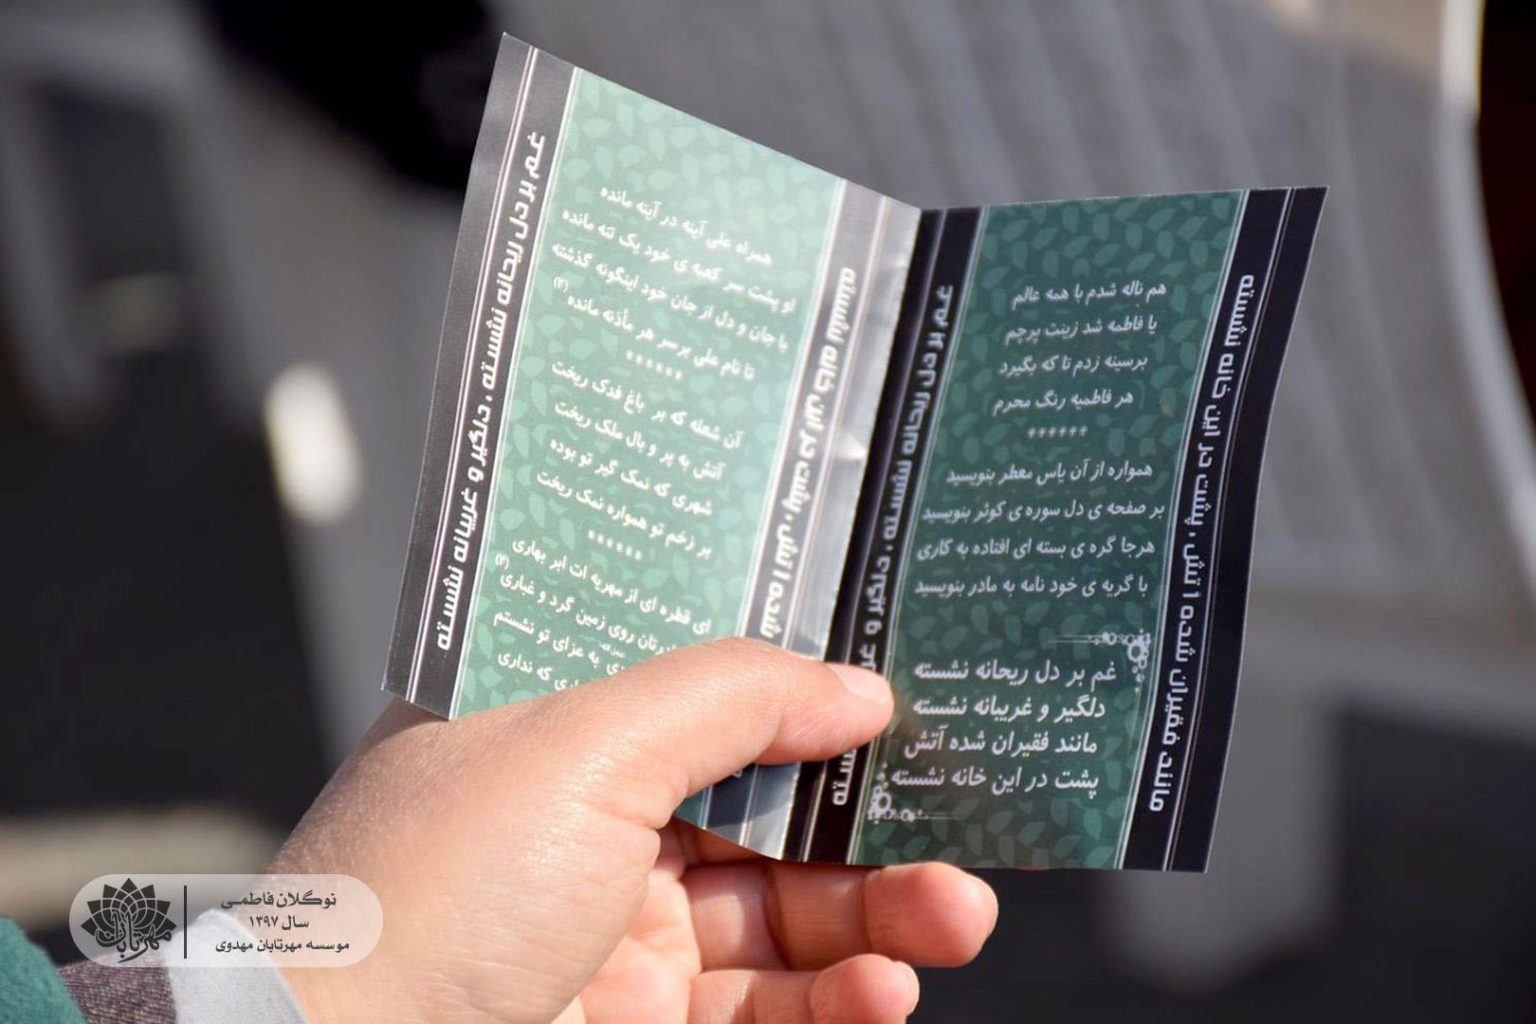 هم ناله شدم با همه عالم
با فاطمه شد زینت پرچم
برسینه زدم تا که بگیرد
هر فاطمیه رنگ محرم
******
همواره از آن یاس معطر بنویسید
بر صفحه ی دل سوره ی کوثر بنویسید
هرجا گره ی بسته ای افتاده به کاری
با گریه ی خود نامه به مادر بنویسید
غم بر دل ریحانه نشسته
دلگیر و غریبانه نشسته
مانند فقیران شده آتش
پشت در این خانه نشسته
مانند فقیران شده آتش ، پشت در این خانه نشسته
غم بر دل ریحانه نشسته ، دلگیر و
همراه علی آینه در آینه مانده
او پشت سر کعبه ی خود یک تنه مانده
با جان و دل از جان خود اینگونه گذشته
تا نام علی برسر هر مأذنه مانده (۲)
******
آن شعله که بر باغ فدک ریخت
آتش به پر و بال ملک ریخت
شهری که نمک گیر تو بوده
بر زخم تو همواره نمک ریخت
******
ای قطره ای از مهریه ات ابر بهاری
روی زمین گرد و غباری (۲)
به عزای تو نشستم
که نداری
شده آتش ، پشت در این خانه نشسته
غم بر دل ریحانه نشسته ، دلگیر و غریبانه نشسته
مهرتابان
نوگلان فاطمی
سال ۱۳۹۷
موسسه مهرتابان مهدوی